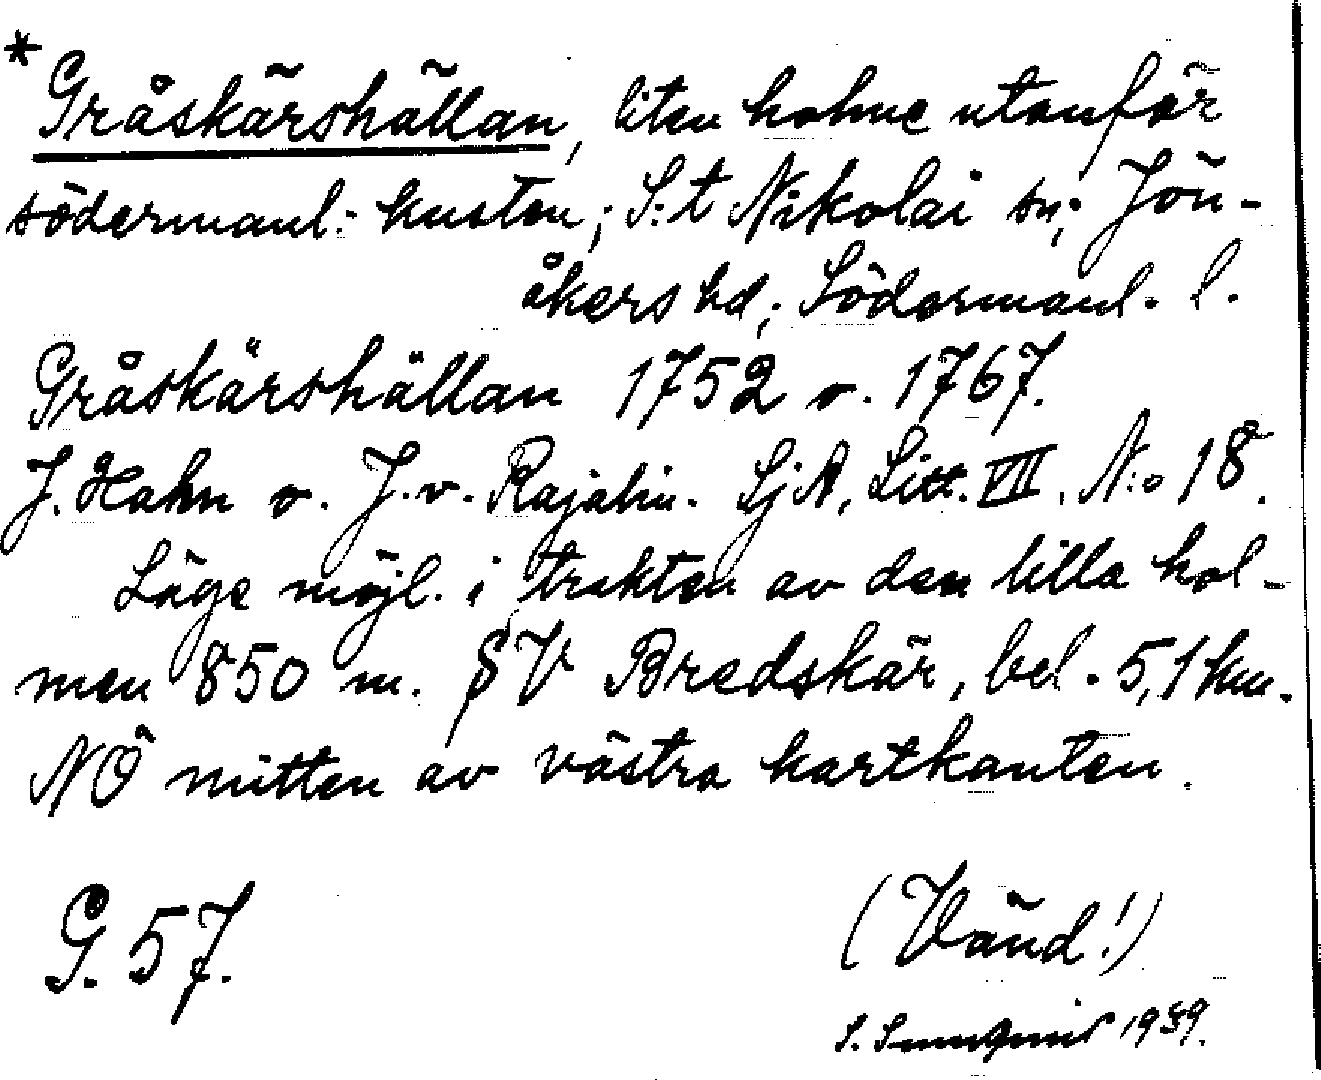 * Gråskärshällan, liten holme utanför
södermanl: kusten; S:t Nikolai sn; Jön-
åkers hd; Södermanl. l.
Gråskärshällan 1752 o. 1767.
J. Hahn o. J. v. Rajalin. SjA, Litt. VII. N:o 18.
Läge möjl. i trakten av den lilla hol-
men 850 m. SV Bredskär, bel. 5,1 km.
NÖ mitten av västra kartkanten.
G. 57.
(Vänd!)
S. 1939.